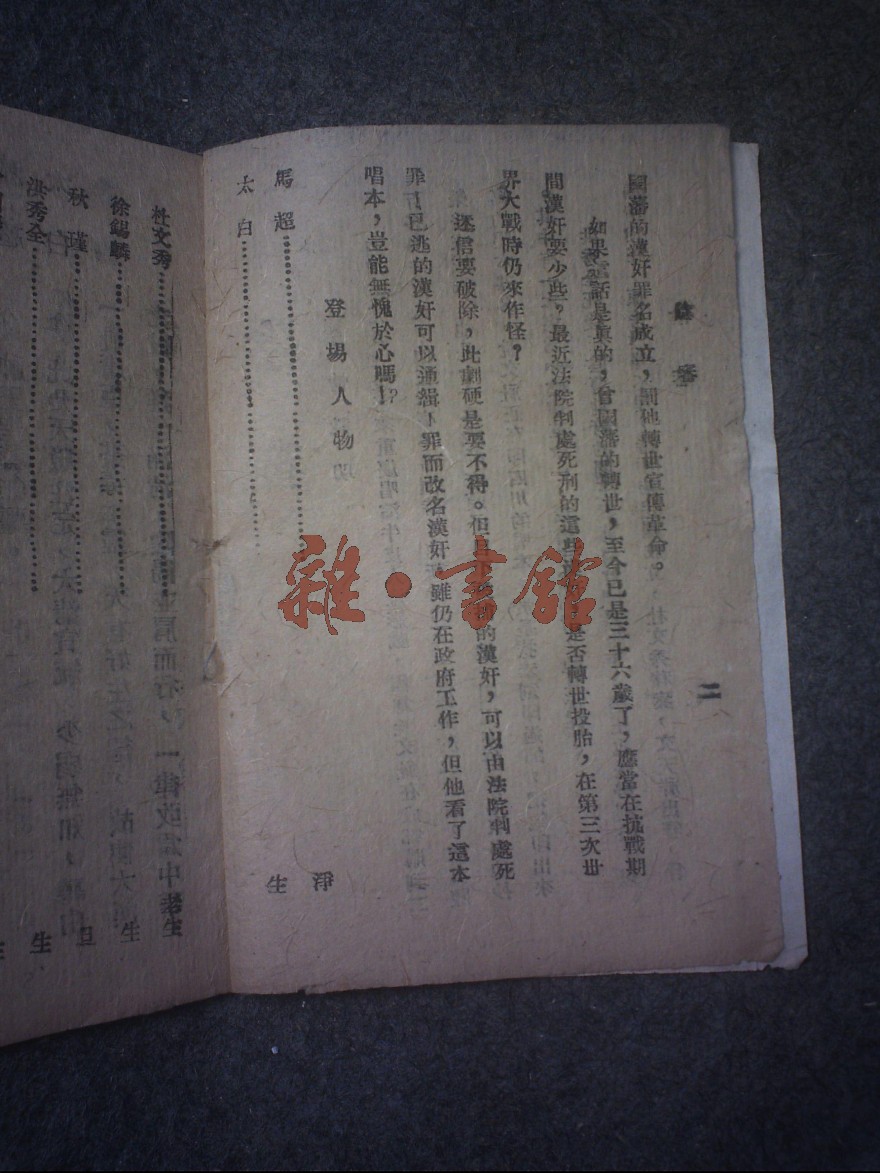 二
國藩的漢奸罪名成立,罰他轉世宣傳革命。
如果這話是眞的,曾國藩的轉世,至今已是三十六歲了,應當在抗戰期
間漢奸要少些?最近法院判處死刑的這些 是否轉世投胎,在第三次世
界大戰時仍來作怪?
迷信要破除,此劇硬是要不得。但目 的漢奸,可以由法院判處死
罪,已逃的漢奸可以通緝,罪而改名漢奸,雖仍在政府工作,但他看了這本
唱本,豈能無愧於心嗎!?
登場人物
馬超 淨
太白 生
杜文秀 生
徐錫麟 生
秋瑾 旦
洪秀全 生
雜·書館